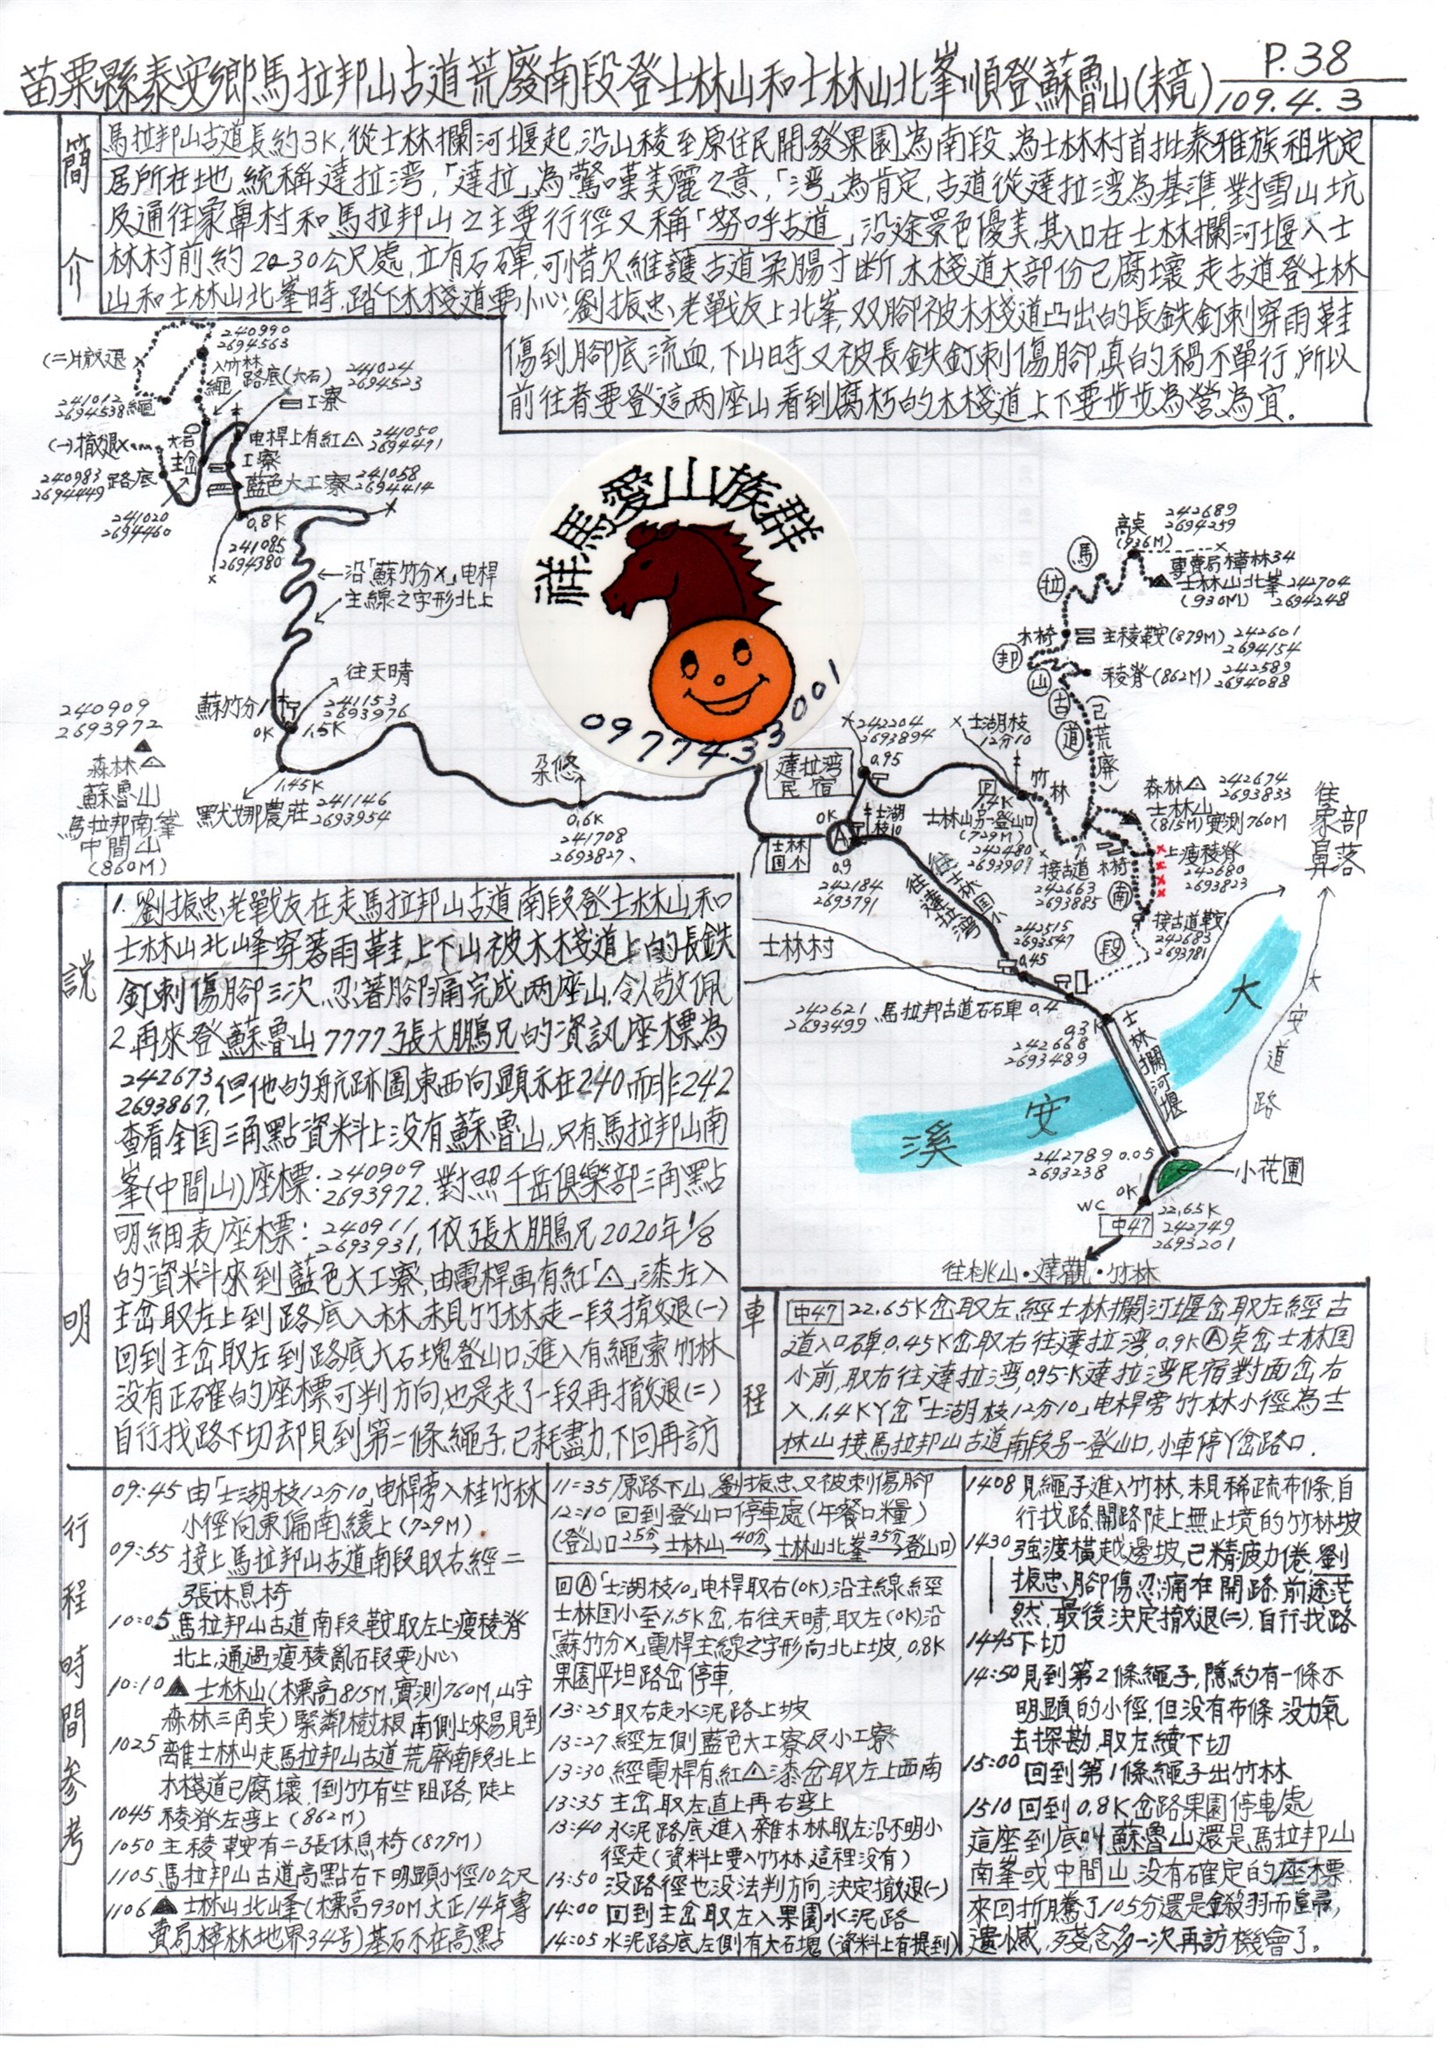 苗栗縣泰安鄉馬拉邦山古道荒廢南段登士林山和士林山北峯順登蘇魯山(未竟)
P.38
109.4.3
簡介
馬拉邦山古道長約3K,從士林攔河堰起,沿山稜至原住民開發果園為南段,為士林村首批泰雅族祖先定
居所在地,統稱達拉湾,「達拉」為驚嘆美麗之意,「湾」為肯定,古道從達拉湾為基準,對雪山坑
及通往象鼻村和馬拉邦山之主要行徑又稱「努呼古道」沿途景色優美,其入口在士林攔河堰入士
林村前約20-30公尺處,立有石碑,可惜欠維護古道柔腸寸斷,木棧道大部份已腐壞,走古道登士林
山和士林山北峯時,踏下木棧道要小心;劉振忠老戰友上北峯,双腳被木棧道凸出的長鉄釘刺穿雨鞋
傷到腳底流血,下山時又被長鉄釘刺傷腳,真的禍不單行,所以
前往者要登這兩座山看到腐朽的木棧道上下要步步為營為宜.
240990
2694563
(二)撤退
入竹林
繩
路底(大石)
241024
2694523
241012
2694538
繩
工寮
(一)撤退
大石
主岔
电桿上有紅△
241050
2694471
工寮
240983
2694449
路底
藍色大工寮
241058
2694414
241020
2694460
0.8K
241085
2694380
沿「蘇竹分X」电桿
主線之字形北上
往天晴
蘇竹分1
241153
2693976
0K
1.5K
240909
2693972
森林△
蘇魯山
馬拉邦南峯
中間山
(860M)
1.45K
黑犬娜農莊
241146
2693954
朶悠
0.6K
241708
2693827
祥馬愛山族群
0977433001
達拉湾
民宿
242204
2693894
0.95
士湖枝
12分10
竹林
1.4K
士林山另一登山口
(729M)
242480
2693991
0K
A
0.9
242184
2693791
士湖
枝10
士林
国小
往士林国小
往達拉湾
接古道
242663
2693885
木椅
士林村
242515
2693547
0.45
242621
2693499
馬拉邦古道石碑
0.4
0.3K
242668
2693489
高点
(936M)
242689
2694259
專賣局樟林34
士林山北峯
(930M)
242704
2694248
木椅
主稜鞍(879M)
242601
2694154
稜脊(862M)
242589
2694088
馬拉邦山古道
(已荒廢)
南段
森林△
士林山
(815M)實測760M
242674
2693833
上瘦稜脊
242680
2693823
接古道鞍
242683
2693781
往象鼻部落
大安道路
大安溪
士林攔河堰
242789
2693238
0.05
小花圃
0K
WC
中47
22.65K
242749
2693201
往桃山·達觀·竹林
說明
1.劉振忠老戰友在走馬拉邦山古道南段登士林山和
士林山北峰穿著雨鞋,上下山被木棧道上的長鉄
釘刺傷腳三次,忍著腳痛完成兩座山,令人敬佩
2.再來登蘇魯山7777張大鵬兄的資訊座標為
242673
2693867,但他的航跡圖東西向顯示在240而非242
查看全国三角點資料上没有蘇魯山,只有馬拉邦山南
峯(中間山)座標:240909
2693972.對照千岳俱樂部三角點
明細表座標:240911
2693931,依張大鵬兄2020年1/8
的資料來到藍色大工寮,由電桿画有紅「△」漆左入
主岔取左上到路底入林,未見竹林走一段撤退(一)
回到主岔取左到路底大石塊登山口,進入有繩索竹林
没有正確的座標可判方向,也是走了一段再撤退(二)
自行找路下切却見到第二條繩子,已耗盡力,下回再訪
車程
中47 22.65K岔取左,經士林攔河堰岔取左經古
道入口碑0.45K岔取右往達拉湾,0.9KⒶ点岔士林国
小前,取右往達拉湾,0.95K達拉湾民宿對面岔,右
入,1.4KY岔「士湖枝12分10」电桿旁竹林小徑為士
林山接馬拉邦山古道南段另一登山口,小車停丫岔路口.
行程時間參考
09:45 由「士湖枝12分10」电桿旁入桂竹林
小徑向東偏南緩上(729M)
09:55 接上馬拉邦山古道南段取右經二
張休息椅
10:05 馬拉邦山古道南段鞍取左上瘦稜脊
北上,通過瘦稜亂石段要小心
10:10 ▲士林山(標高815M,實測760M,山字
森林三角点)緊鄰樹根,南側上來易見到
1025 離士林山走馬拉邦山古道荒廢南段北上
木棧道已腐壞,倒竹有些阻路,陡上
1045 稜脊左弯上(862M)
1050 主稜鞍有二張休息椅(879M)
1105 馬拉邦山古道高點右下明顯小徑10公尺
1106 ▲士林山北峰(標高930M,大正14年專
賣局樟林地界34号)基石不在高點
11:35 原路下山,劉振忠又被刺傷腳
12:10 回到登山口停車處(午餐口糧)
(登山口25分→士林山40分→士林山北峯35分→登山口)
回Ⓐ「士湖枝10」电桿取右(0K)沿主線經
士林国小至1.5K岔,右往天晴,取左(0K)沿
「蘇竹分X」電桿主線之字形向北上坡,0.8K
果園平坦路岔停車,
13:25 取右走水泥路上坡
13:27 經左側藍色大工寮及小工寮
13:30 經電桿有紅△漆岔取左上西南
13:35 主岔取左直上再右弯上
13:40 水泥路底進入雜木林取左沿不明小
徑走(資料上要入竹林,這裡没有)
13:50 没路徑也没法判方向,決定撤退(一)
14:00 回到主岔取左入果園水泥路
14:05 水泥路底左側有大石塊(資料上有提到)
1408 見繩子進入竹林,未見稀疏布條,自
行找路,開路陡上無止境的竹林坡
1430 強渡橫越邊坡,已精疲力倦,劉
振忠腳傷忍痛在開路,前途茫
然,最後決定撤退(二),自行找路
1445 下切
14:50 見到第2條繩子,隱約有一條不
明顯的小徑,但没有布條,没力氣
去探勘,取左續下切
15:00 回到第1條繩子出竹林
1510 回到0.8K岔路果園停車處
這座到底叫蘇魯山還是馬拉邦山
南峯或中間山,没有確定的座標,
來回折騰了105分還是鎩羽而歸,
遺憾,殘念多一次再訪機會了。